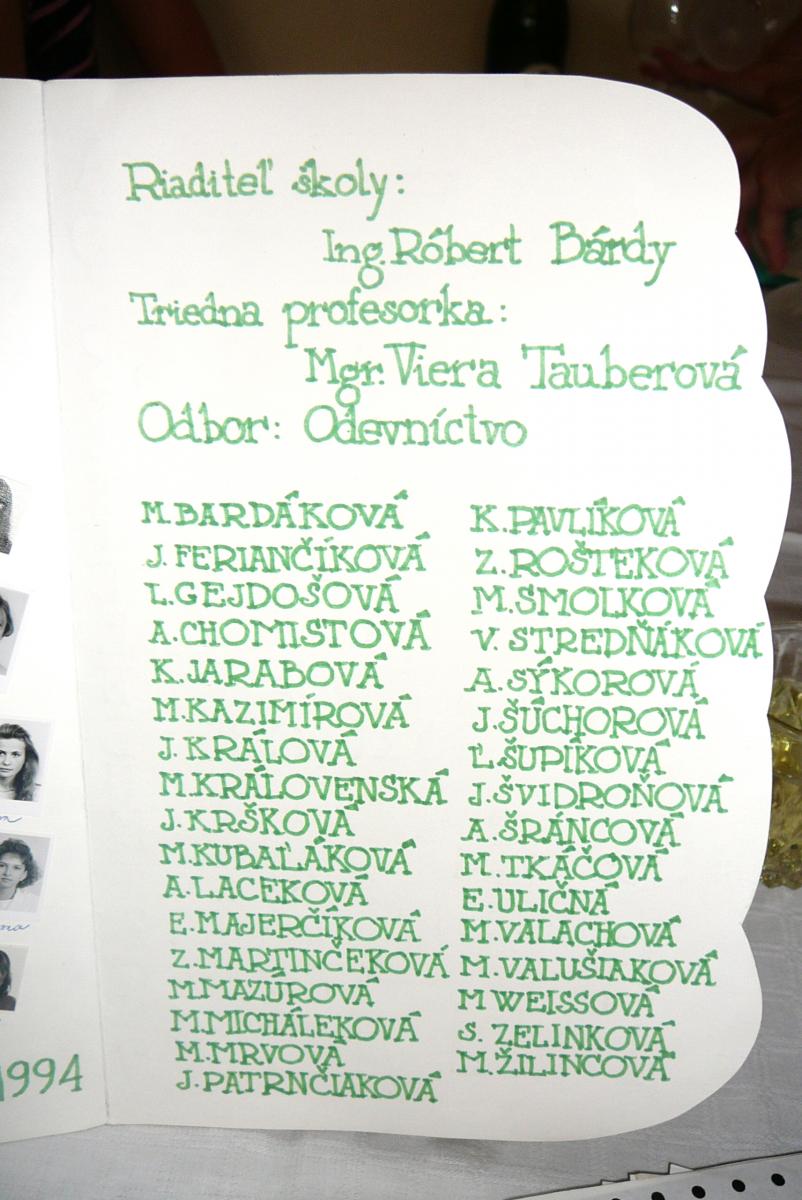 Riaditeľ školy:
Ing. Róbert Bárdy
Triedna profesorka:
Mgr. Viera Tauberová
Odbor: Odevníctvo
M. BARDÁKOVÁ
J. FERIANČÍKOVÁ
Ľ. GEJDOŠOVÁ
A. CHOMISTOVÁ
K. JARABOVÁ
M. KAZIMÍROVÁ
J. KRÁLOVÁ
M. KRÁLOVENSKÁ
J. KRŠKOVÁ
M. KUBAĽÁKOVÁ
A. LACEKOVÁ
E. MAJERČÍKOVÁ
Z. MARTINČEKOVÁ
M. MAZÚROVÁ
M. MICHÁLEKOVÁ
M. MRVOVÁ
J. PATRNČIAKOVÁ
K. PAVLÍKOVÁ
Z. ROŠTEKOVÁ
M. SMOLKOVÁ
V. STREDŇÁKOVÁ
A. SÝKOROVÁ
J. ŠÚCHOROVÁ
Ľ. ŠUPÍKOVÁ
J. ŠVIDROŇOVÁ
A. ŠRÁNCOVÁ
M. TKÁČOVÁ
E. ULIČNÁ
M. VALACHOVÁ
M. VALUŠIAKOVÁ
M WEISSOVÁ
S. ZELINKOVÁ
M. ŽILINCOVÁ
1994